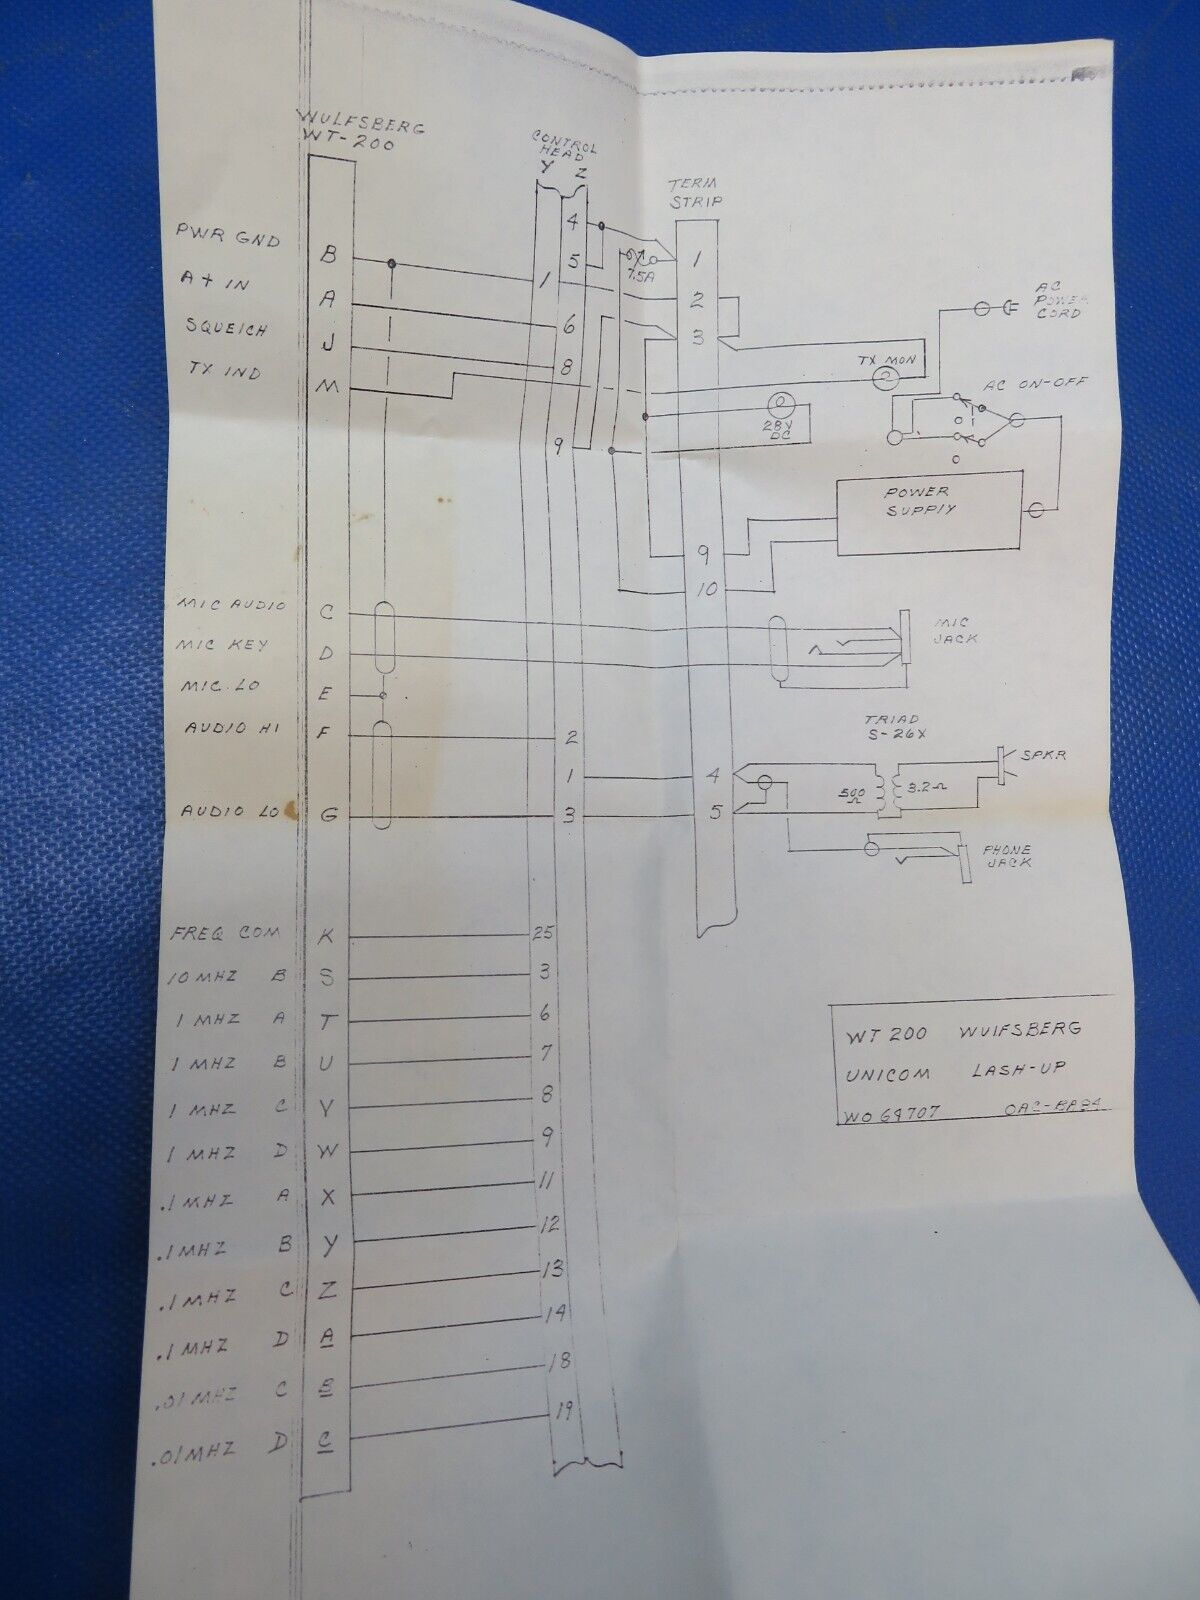 WULFSBERG
WT-200
CONTROL
HEAD
Y Z
TERM
STRIP
PWR GND B
A+ IN A
SQUELCH J
TX IND M
4
5
1
6
8
9
7.5A
1
2
3
9
10
AC
POWER
CORD
TX MON
AC ON-OFF
28V
DC
POWER
SUPPLY
MIC AUDIO C
MIC KEY D
MIC LO E
AUDIO HI F 2
1 4
AUDIO LO G 3 5
MIC
JACK
TRIAD
S-26X
500
Ω
3.2Ω
SPKR
PHONE
JACK
FREQ COM K 25
10 MHZ B S 3
1 MHZ A T 6
1 MHZ B U 7
1 MHZ C V 8
1 MHZ D W 9
.1 MHZ A X 11
.1 MHZ B Y 12
.1 MHZ C Z 13
.1 MHZ D A 14
.01 MHZ C B 18
.01 MHZ D C 19
WT 200 WUIFSBERG
UNICOM LASH-UP
WO 69707